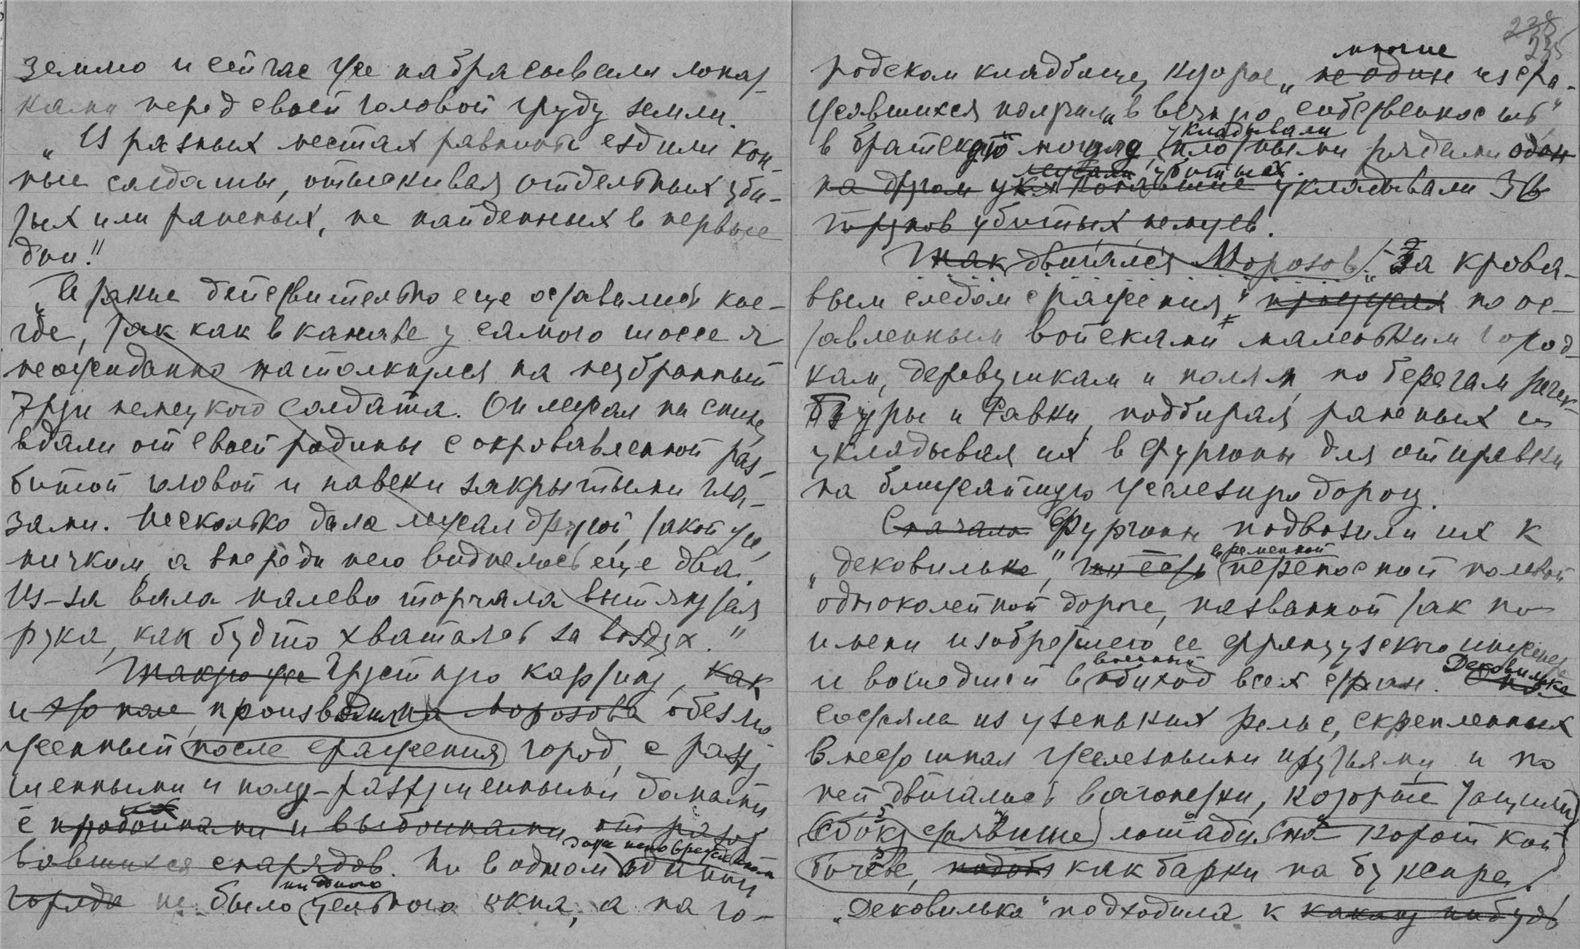 землю и сейчас уже набрасывали лопат-
ками перед своей головой груду земли.
„В разных местах равнины ездили кон-
ные солдаты, отыскивая отдельных уби-
тых или раненых, не найденных в первые
дни."
„И такие действительно еще оставались кое-
где, так как в канаве у самого шоссе я
неожиданно натолкнулся на неубранный
труп немецкого солдата. Он лежал на спине,
вдали от своей родины с окровавленной раз-
битой головой и навеки закрытыми гла-
зами. Несколько дале лежал другой, такой
ничком а впереди него виднелось еще два.
Из-за вала налево торчала вытянутая
рука, как будто хваталась за воздух."
Такую же грустную картину, как
и это поле, производил на Морозова обезлю-
женный после сражения город, с разру-
шенными и полу-разрушенными домами
с пробоинами и выбоинами от разор-
вавшихся снарядов. Ни в одном здании
города не было ни одного цельного окна, а на го-
238
235
многие
родском кладбище, которое „не один из сра-
жавшихся получил в вечную собственность"
укладывали
в братскую могилу, плотными рядами один
лежали убитых.
на другом уже укладывали 36
трупов убитых немцев.
Так двигался Морозов „За крова-
вым следом сражения" по ос-
тавленным войсками маленьким город-
кам, деревушкам и полям, по берегам речек
Бзуры и Равки, подбирая раненых и
укладывая их в фургоны для отправки
на ближайшую железную дорогу.
Сначала Фургоны подвозили их к
временной
„дековильке", то есть переносной полевой
одноколейной дороге, названной так по
имени изобретшего ее французского инженера
военный Дековилька
и вошедшей в обиход всех стран.
состояла из узеньких рельс, скрепленных
внесошпал железными прутьями и по
ней двигались вагонетки, которые тащили
сбоку лошади на короткой
бичеве, как барки на буксире.
„Дековилька" подходила к какому нибудь